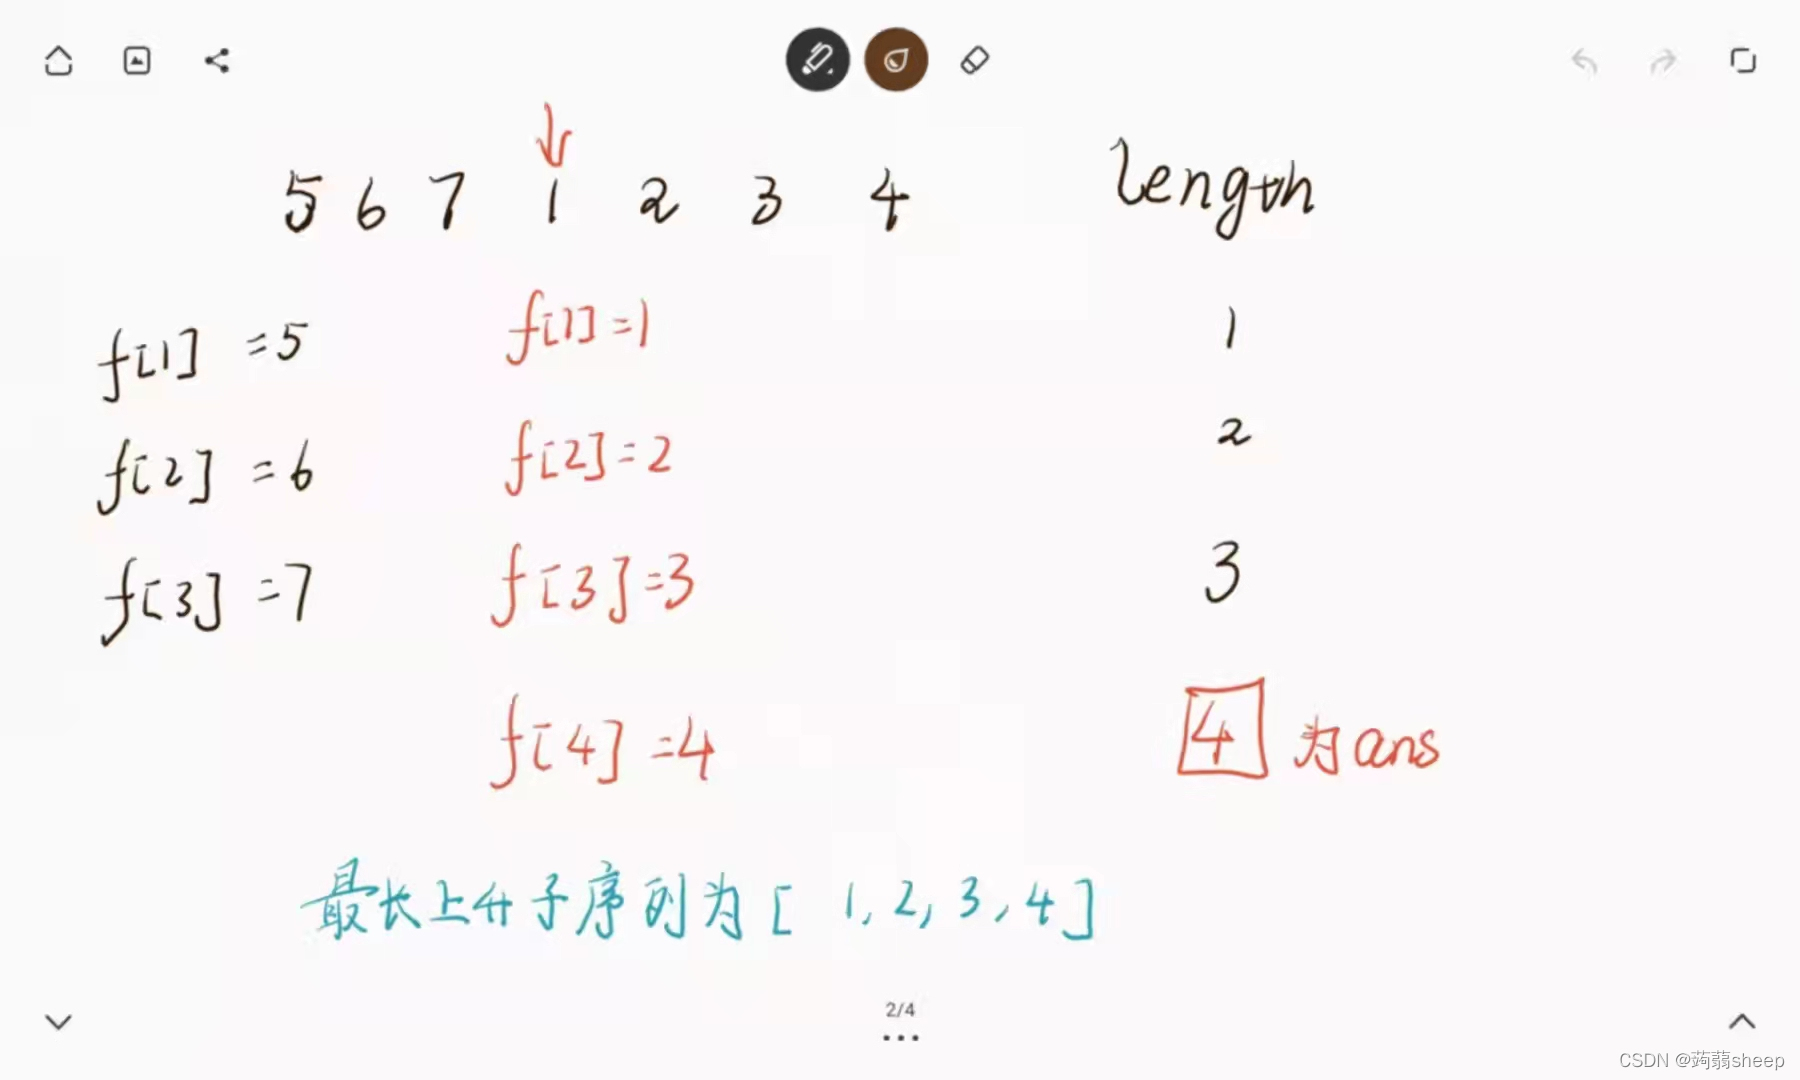 5 6 7 1 2 3 4 length
f[1] =5 f[1]=1 1
f[2] =6 f[2]=2 2
f[3] =7 f[3]=3 3
f[4]=4 4 为ans
最长上升子序列为[ 1,2,3,4]
2/4
CSDN @蒟蒻sheep